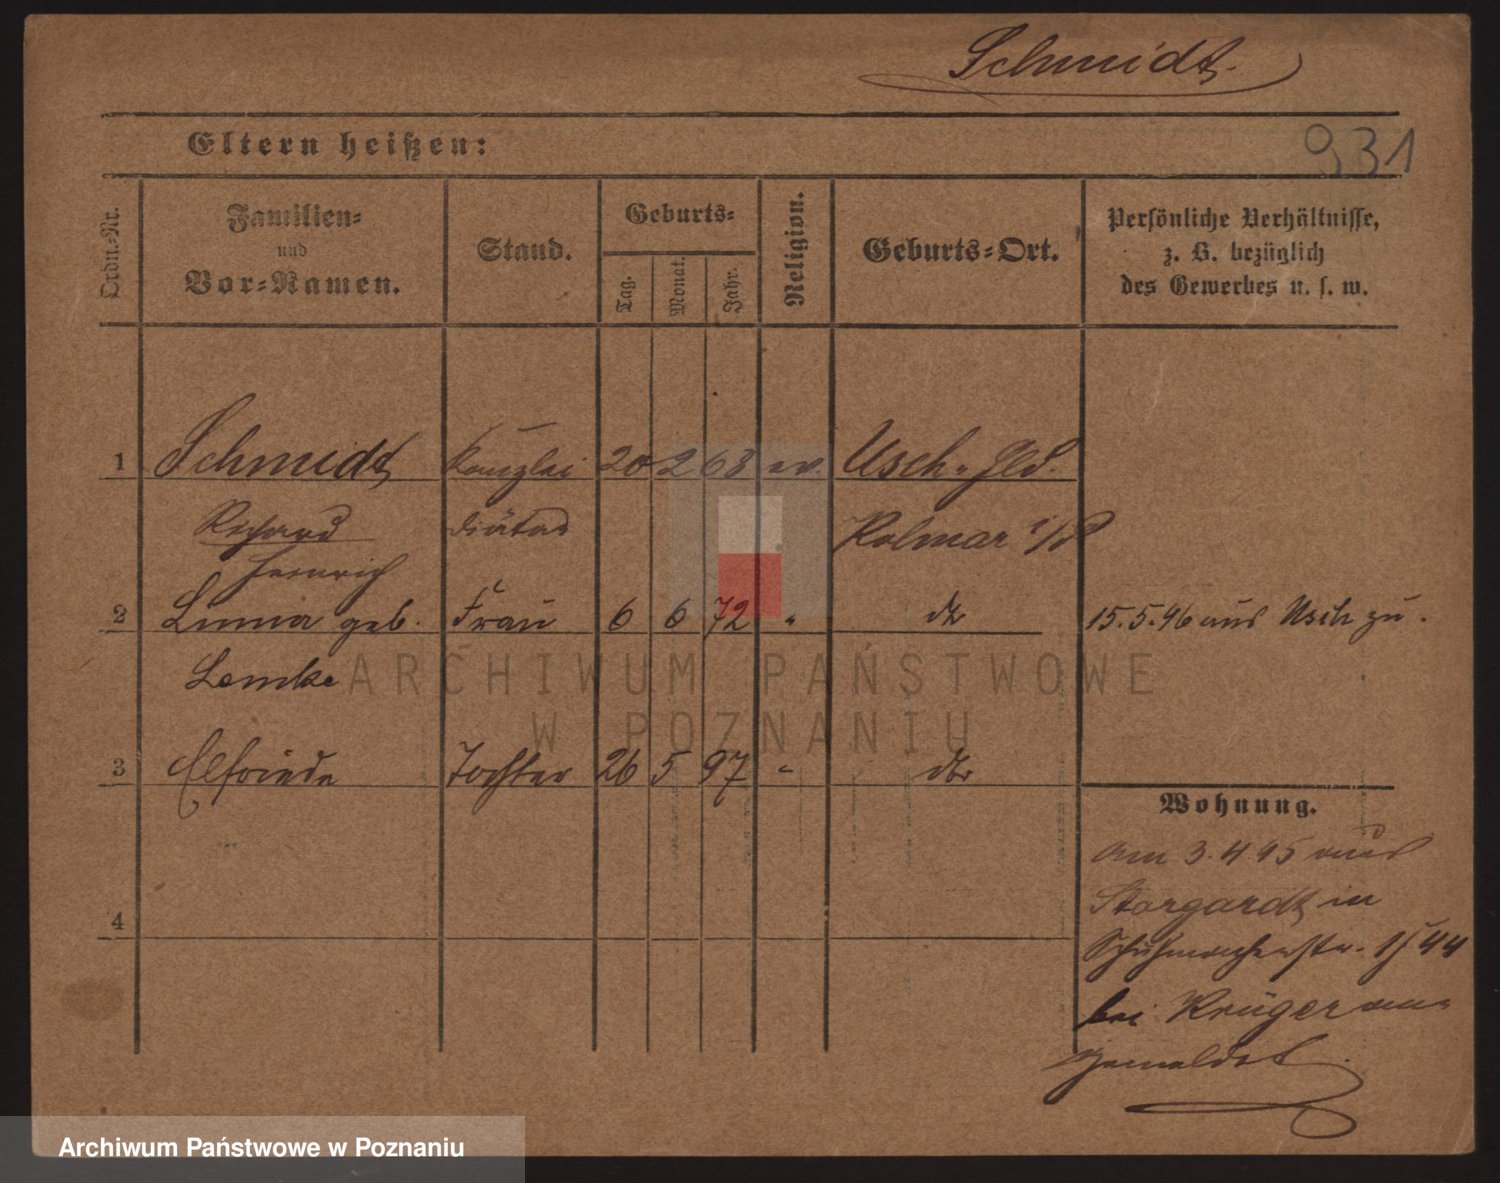 Schmidt.
Eltern heißen:
931
Ordn.-Nr.
Familien-
und
Vor-Namen.
Stand.
Geburts-
Tag.
Monat.
Jahr.
Religion.
Geburts-Ort.
Persönliche Verhältnisse,
z. B. bezüglich
des Gewerbes u. s. w.
1 Schmidt Kanzlei 20 2 68 ev. Usch
Richard diätar Kolmar i/P
Heinrich
2 geb. Frau 6 6 72 " dto 15.5.96 aus Usch zu.
Lemke
ARCHIWUM PAŃSTWOWE
W POZNANIU
3 Elfriede Tochter 26 5 97 " dto
Wohnung.
Am 3.4.95 aus
Stargardt in
4
Schuhmacherstr. 44
bei Krüger an-
gemeldet.
Archiwum Państwowe w Poznaniu